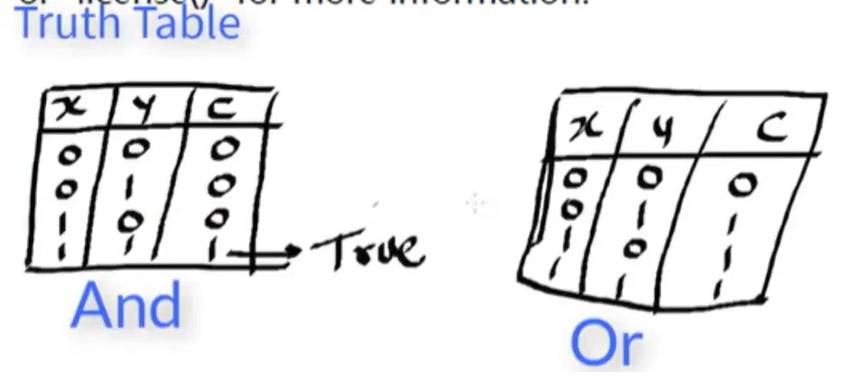 or "license()" for more information.
Truth Table
x y c
0 0 0
0 1 0
1 0 0
1 1 1 → True
And
x y c
0 0 0
0 1 1
1 0 1
1 1 1
Or